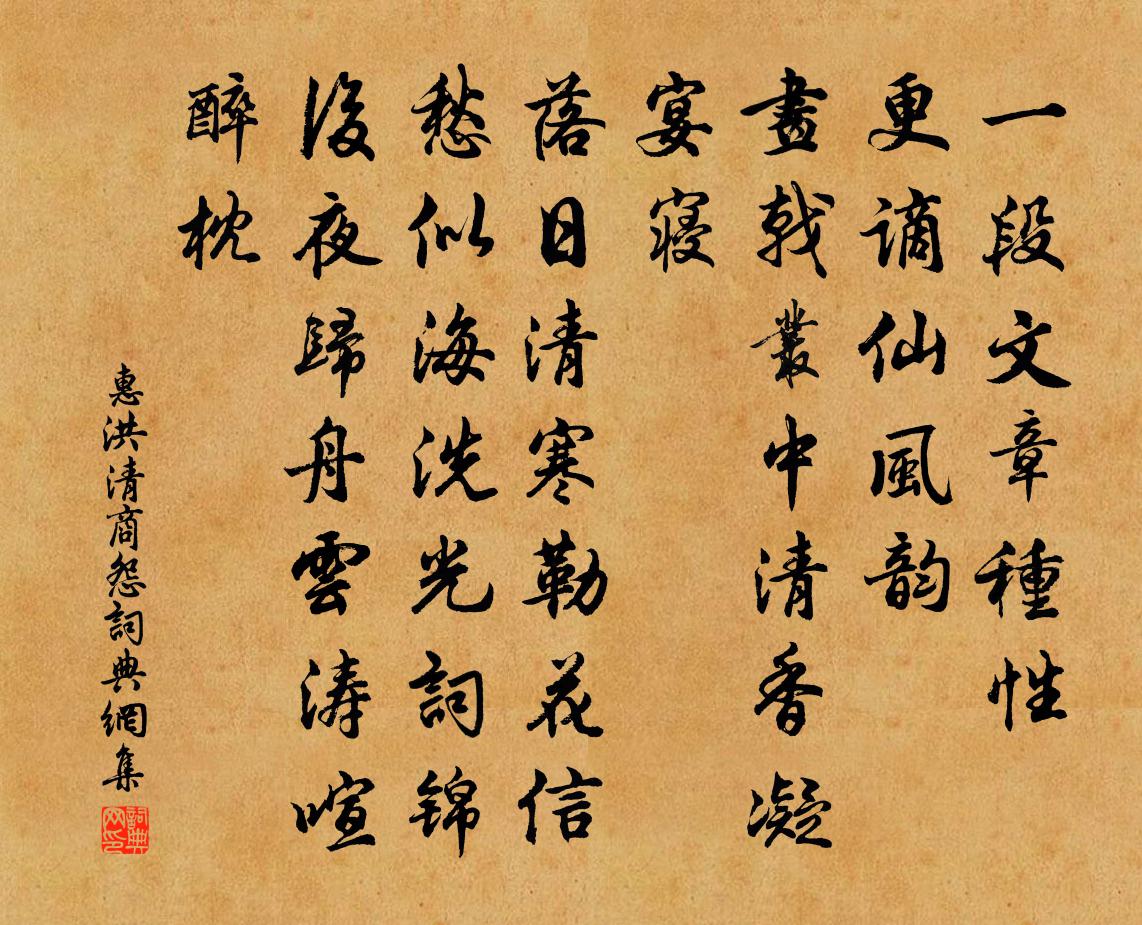 一段文章種性
更謫仙風韵
畫戟叢中清香凝
宴寢
落日清寒勒花信
愁似海洗光詞锦
後夜歸舟雲涛喧
醉枕
惠洪清商怨詞典網集
詞典网印